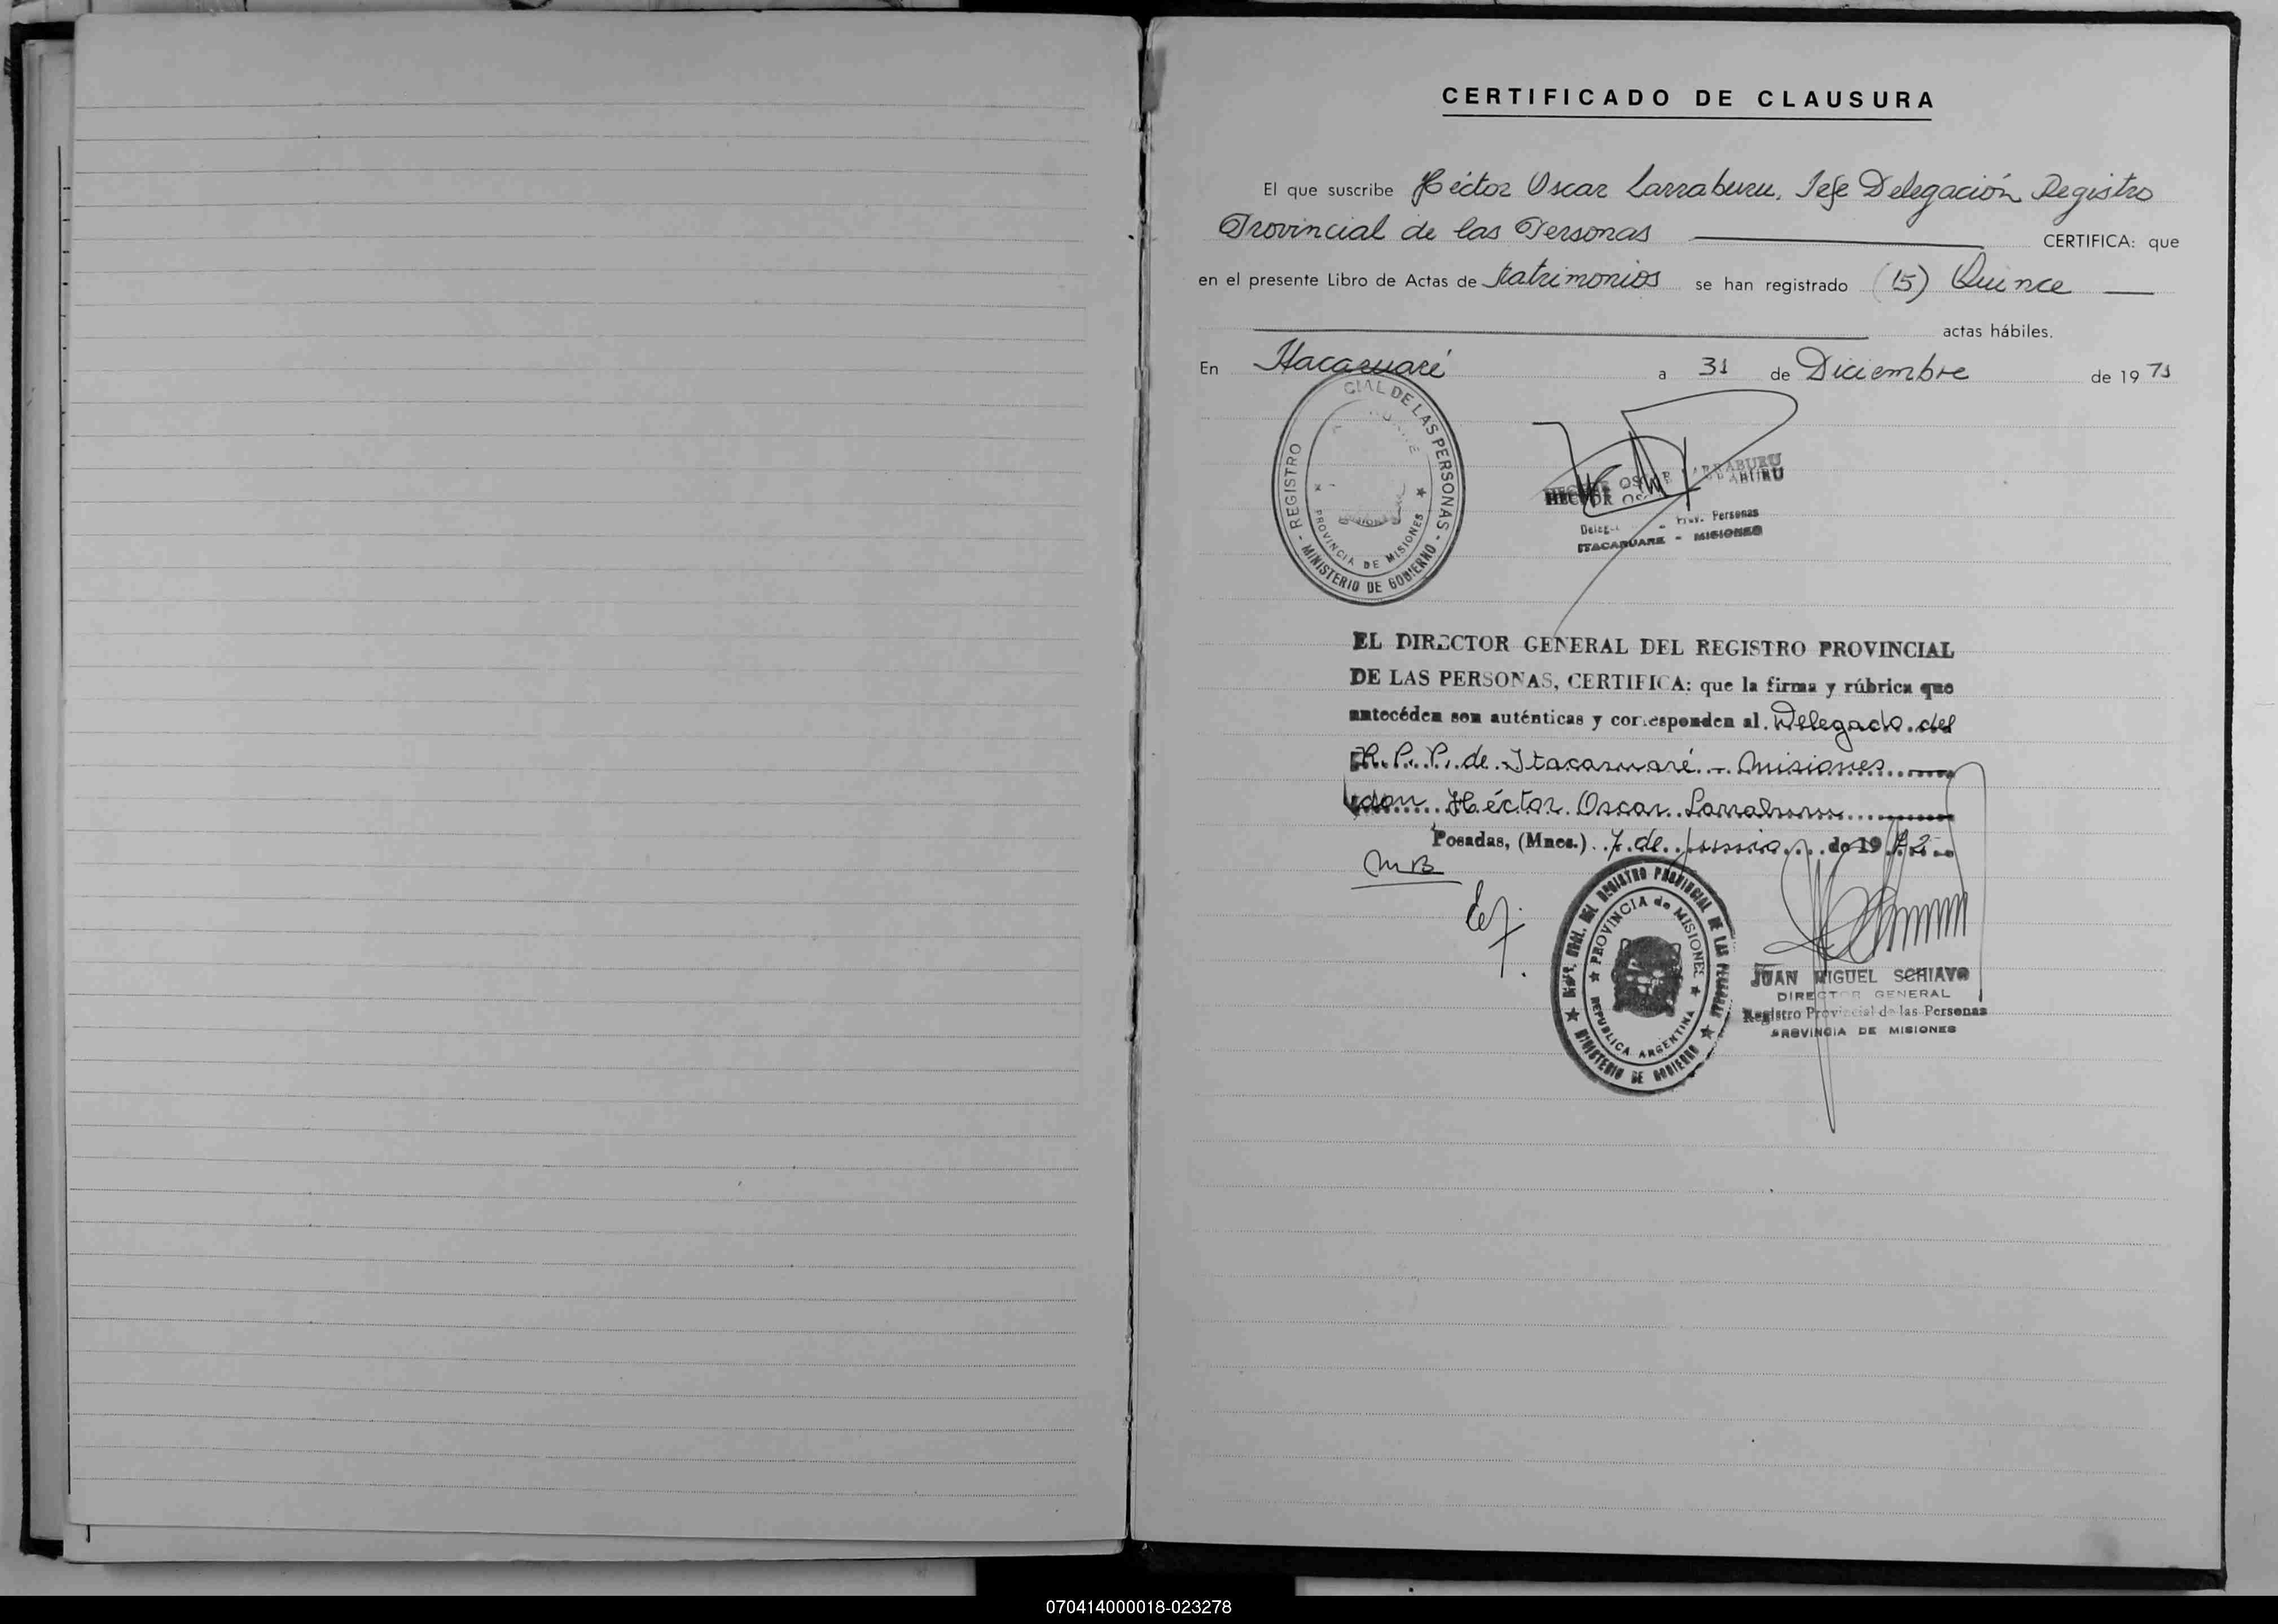 CERTIFICADO DE CLAUSURA
El que suscribe Héctor Oscar Larraburu, Jefe Delegación Registro
Provincial de las Personas CERTIFICA: que
en el presente Libro de Actas de Matrimonios se han registrado (15) Quince
actas hábiles.
En Itacaruaré a 31 de Diciembre de 1971
REGISTRO CIAL DE LAS PERSONAS - MINISTERIO DE GOBIERNO -
PROVINCIA DE MISIONES
HECTOR OSCAR LARRABURU
Prov. Personas
ITACARUARE - MISIONES
EL DIRECTOR GENERAL DEL REGISTRO PROVINCIAL
DE LAS PERSONAS, CERTIFICA: que la firma y rúbrica que
antecéden son auténticas y corresponden al Delegado del
R. P. P. de Itacaruaré - Misiones
don Héctor Oscar Larraburu
Posadas, (Mnes.) 7 de junio de 1972
MB
REGISTRO PROVINCIAL DE LAS PERSONAS ★ MINISTERIO DE GOBIERNO ★
★ PROVINCIA de MISIONES ★ REPUBLICA ARGENTINA
JUAN MIGUEL SCHIAVO
DIRECTOR GENERAL
Registro Provincial de las Personas
PROVINCIA DE MISIONES
070414000018-023278